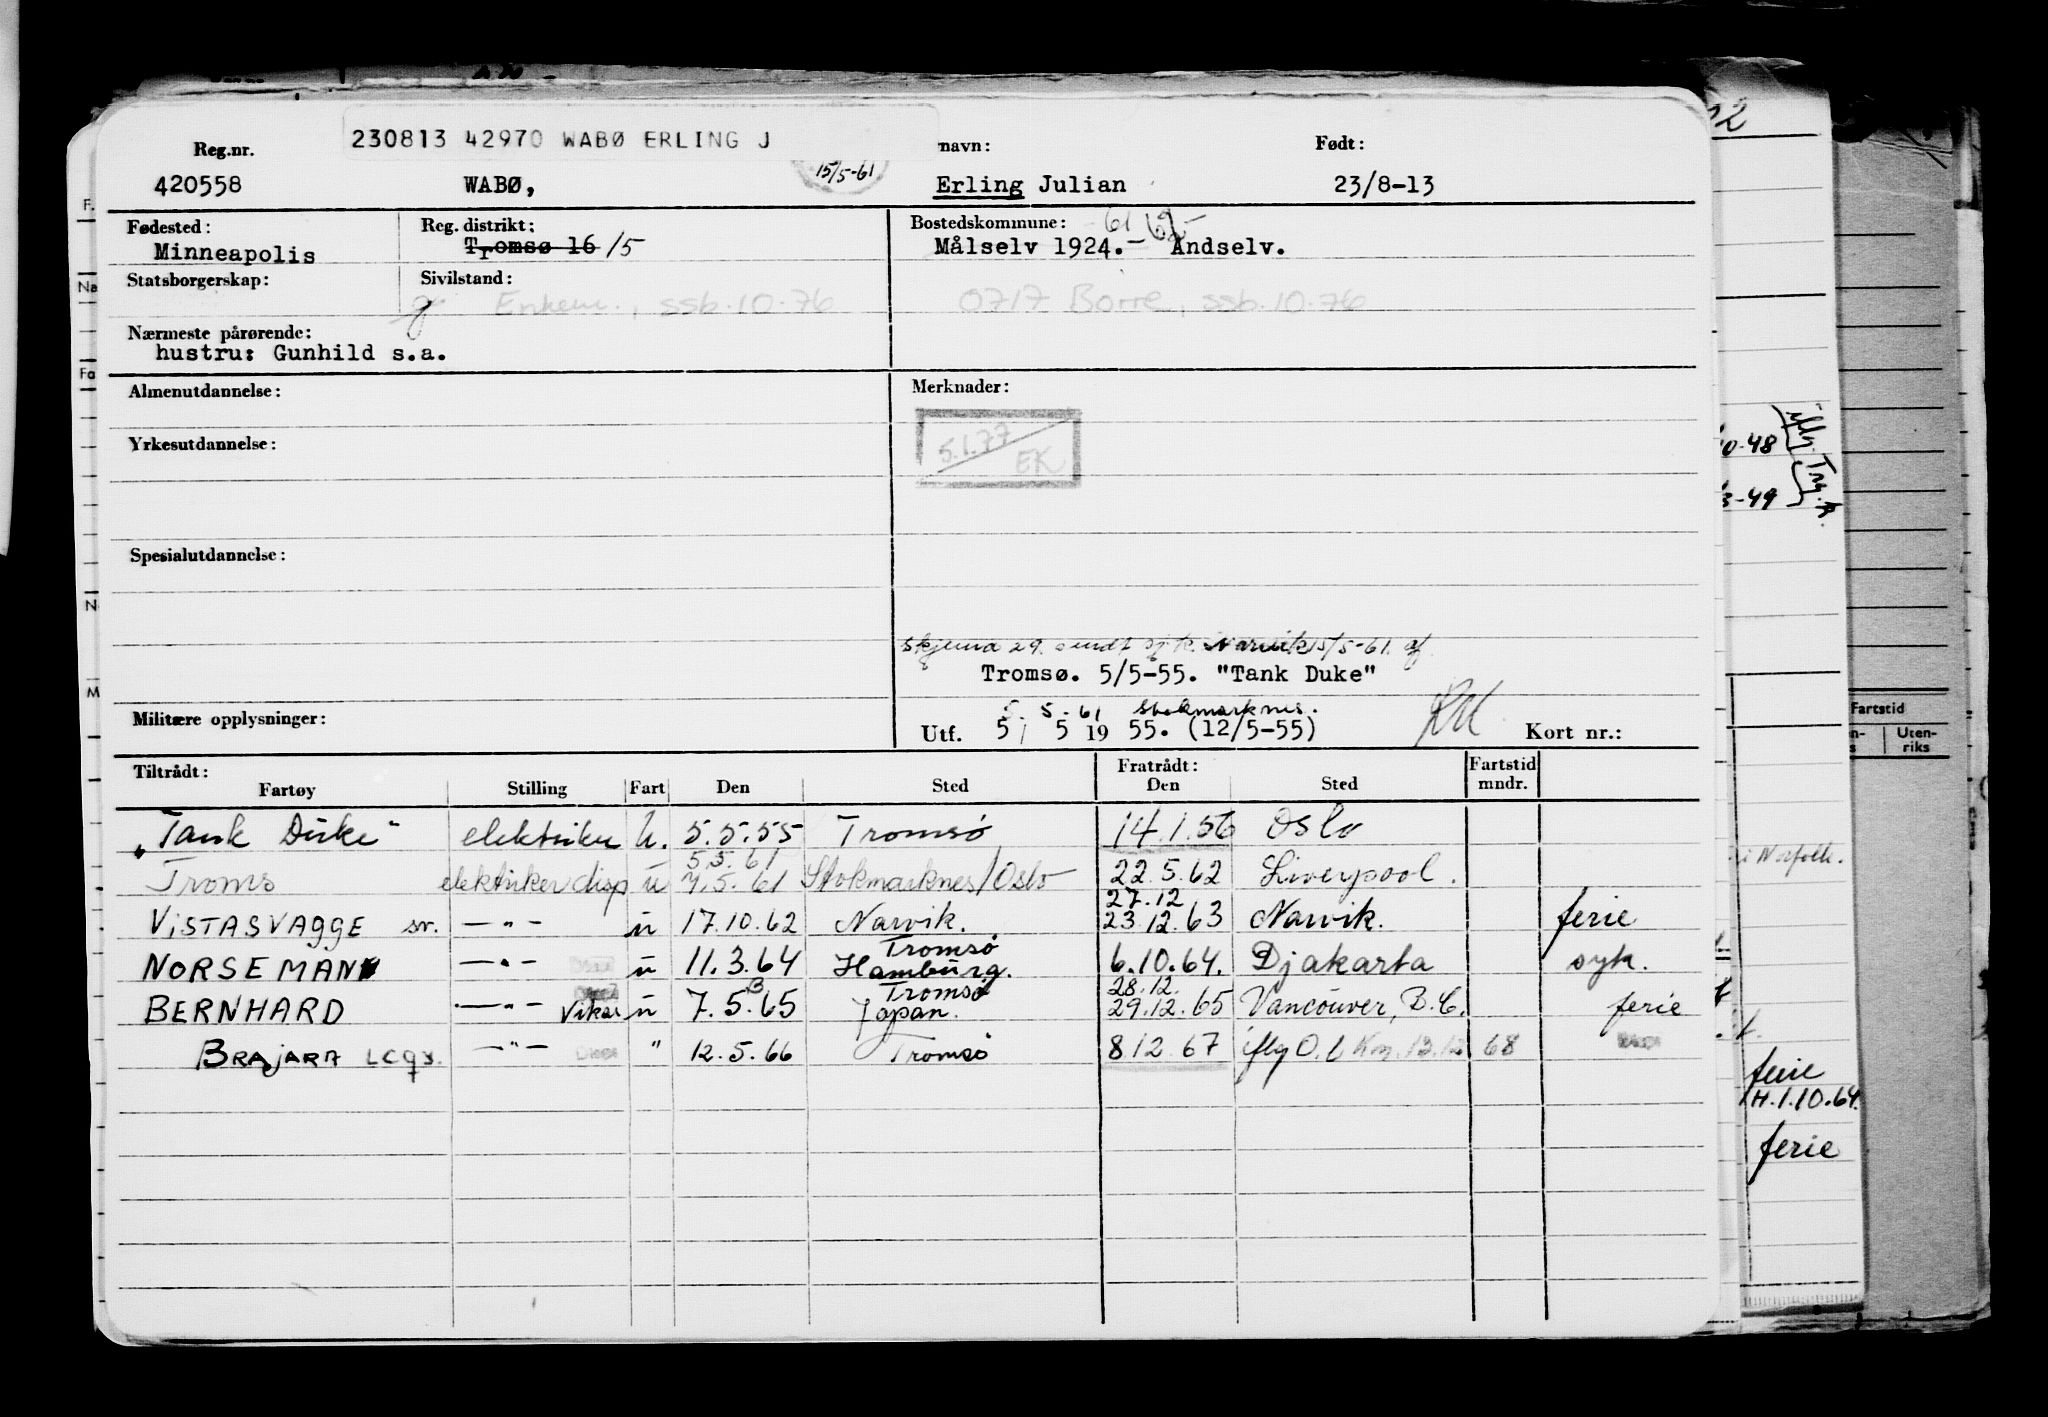 230813 42970 WABØ ERLING J
Reg.nr. navn: Født:
420558 WABØ, 15/5-61 Erling Julian 23/8-13
Fødested: Reg. distrikt: Bostedskommune: -61 62-
Minneapolis Tromsø 16 /5 Målselv 1924.- Andselv.
Statsborgerskap: Sivilstand:
g Enkem., ssb.10-76 0717 Borre, ssb.10-76
Nærmeste pårørende:
hustru: Gunhild s.a.
Almenutdannelse: Merknader:
5.1.77
EK
Yrkesutdannelse:
Spesialutdannelse:
skjema 29. sendt Narvik 15/5-61.
Tromsø. 5/5-55. "Tank Duke"
5. 5-61 Stokmarknes.
Militære opplysninger: Utf. 5/ 5 19 55. (12/5-55) Kort nr.:
Tiltrådt: Fratrådt: Fartstid
Fartøy Stilling Fart Den Sted Den Sted mndr.
"Tank Duke" elektriker U. 5.5.55 Tromsø 14.1.56 Oslo
5.5.61
Troms elektriker disp u 7.5.61 Stokmarknes/Oslo 22.5.62 Liverpool.
27.12
VISTASVAGGE sv. —"— u 17.10.62 Narvik. 23.12.63 Narvik. ferie
Tromsø
NORSEMAN —"— u 11.3.64 Hamburg. 6.10.64. Djakarta syk.
Tromsø 28.12.
BERNHARD —"— Vikar u 7.5.65 Japan. 29.12.65 Vancouver, B.C. ferie
BRAJARA LCQS. —"— " 12.5.66 Tromsø 8.12.67 ifly O.l 13.12 68
F.
Na
Fa
N
M
0-48
3-49
Fartstid
Uten-
riks
i Norfolk.
ferie
H.1.10.64.
ferie